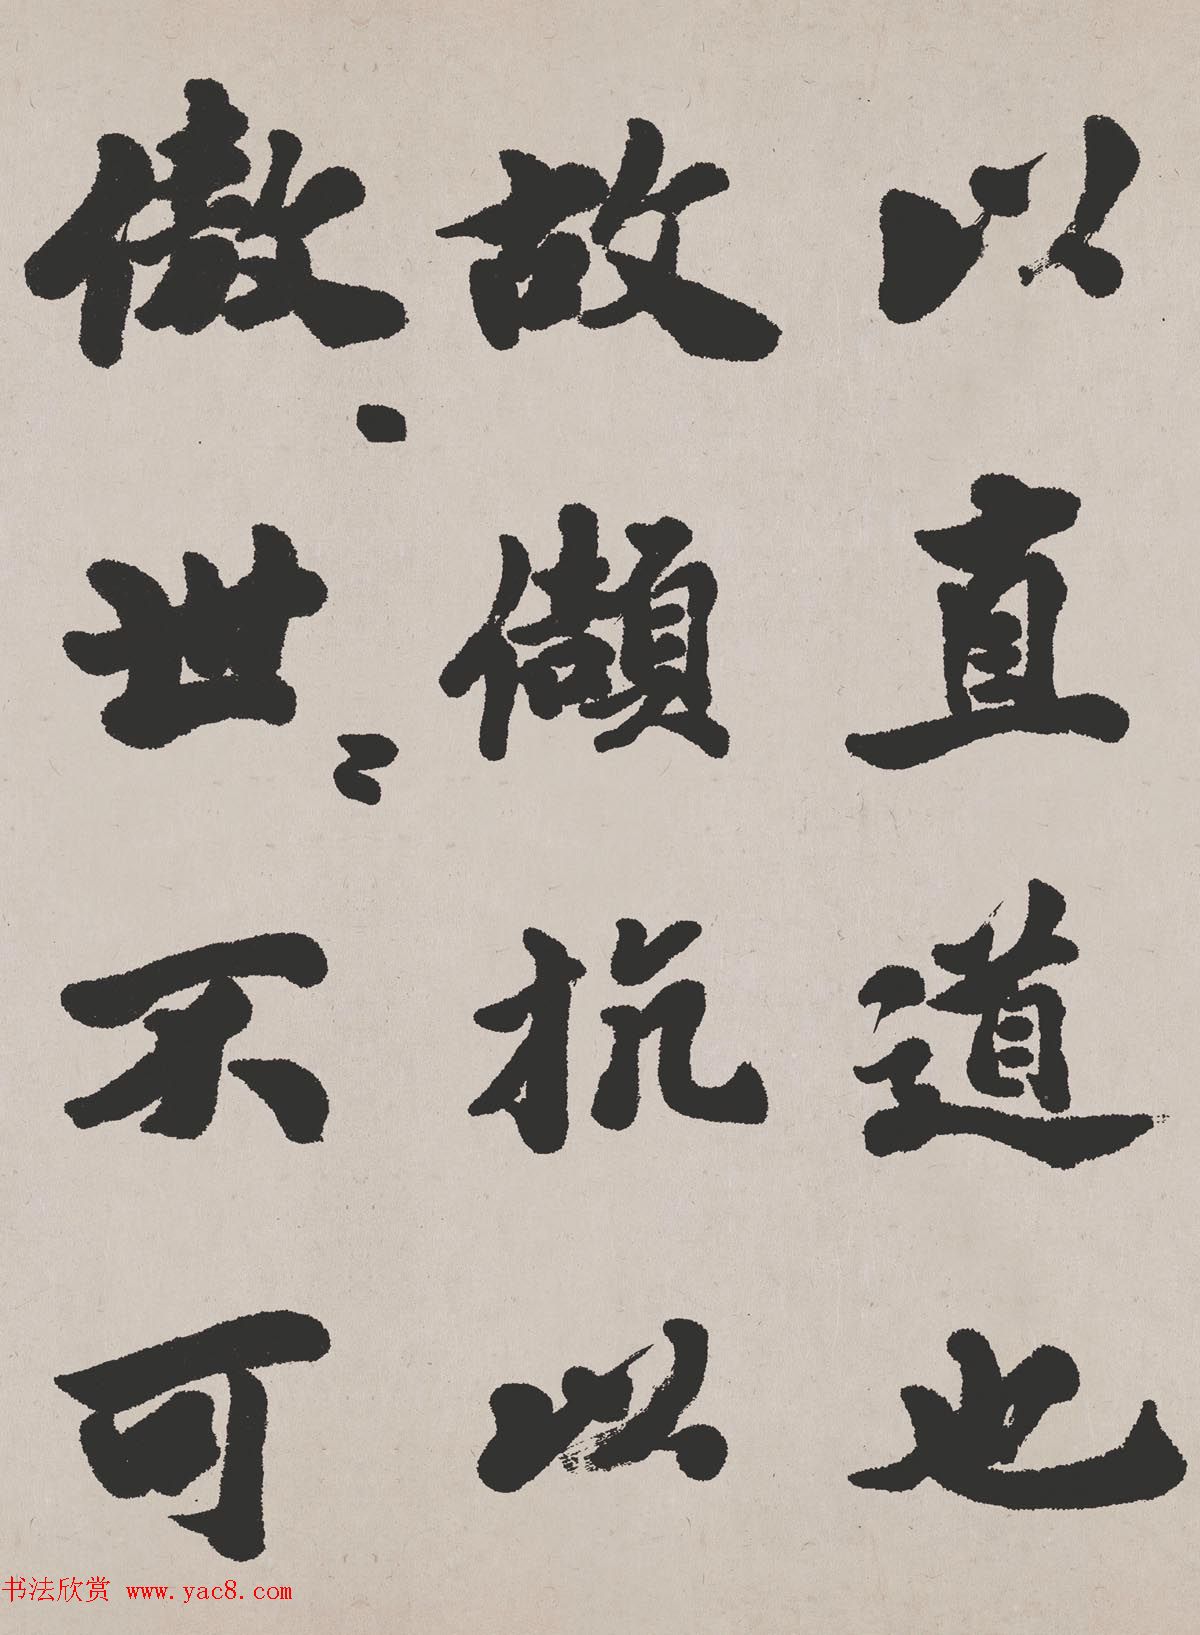 以直道也
故頡抗以
傲々世々不可
书法欣赏 www.yac8.com